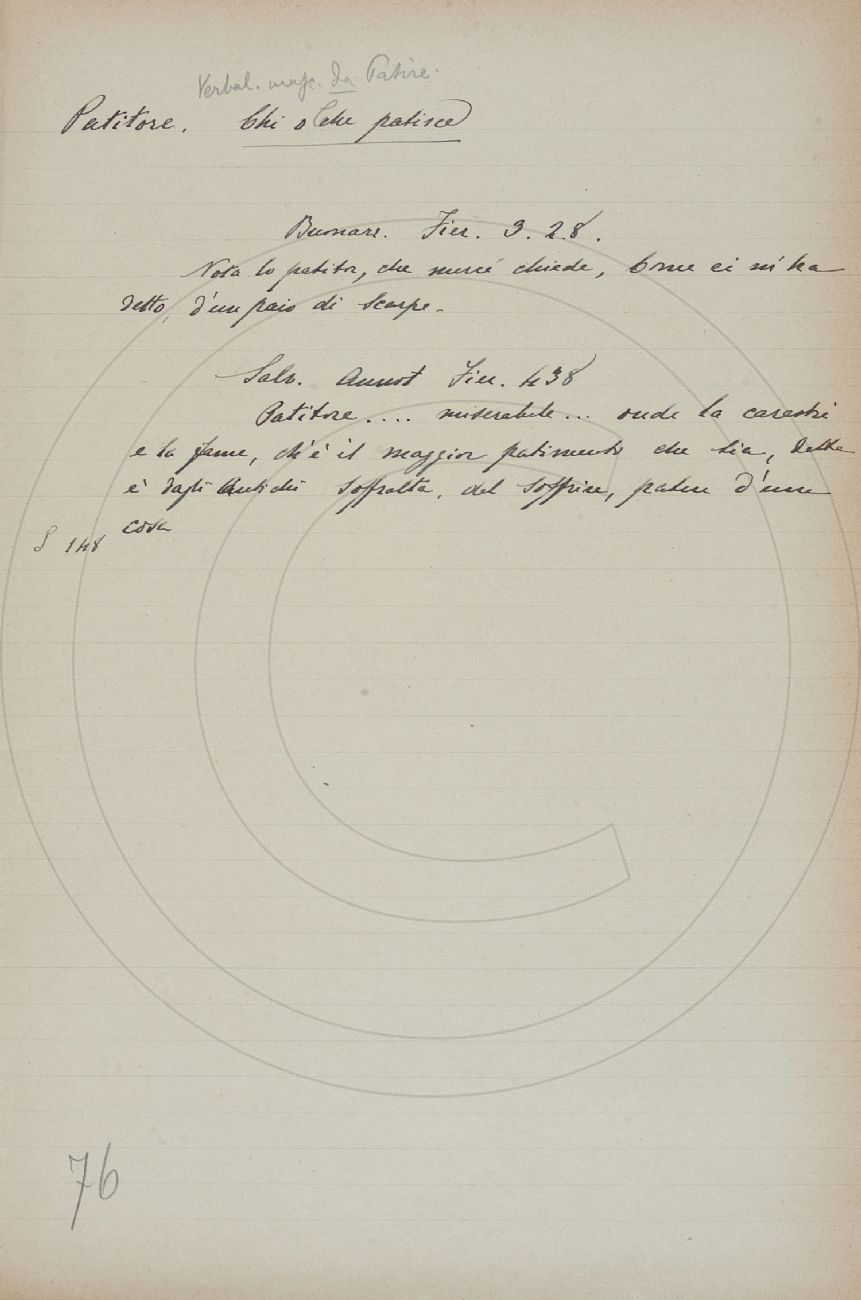 Verbal. masc. da Patire.
Patitore. Chi o che patisce
Buonarr. Fier. 3. 2. 8.
Nota lo patitor, che mercé chiede, Come ei m'ha
detto, d'un paio di scarpe.
Salv. Annot Fier. 438
Patitore.... miserabile... onde la carestia
e la fame, ch'è il maggior patimento che sia, detta
è dagli Antichi soffratta, del soffrire, patire d'una
cosa
S 148
76